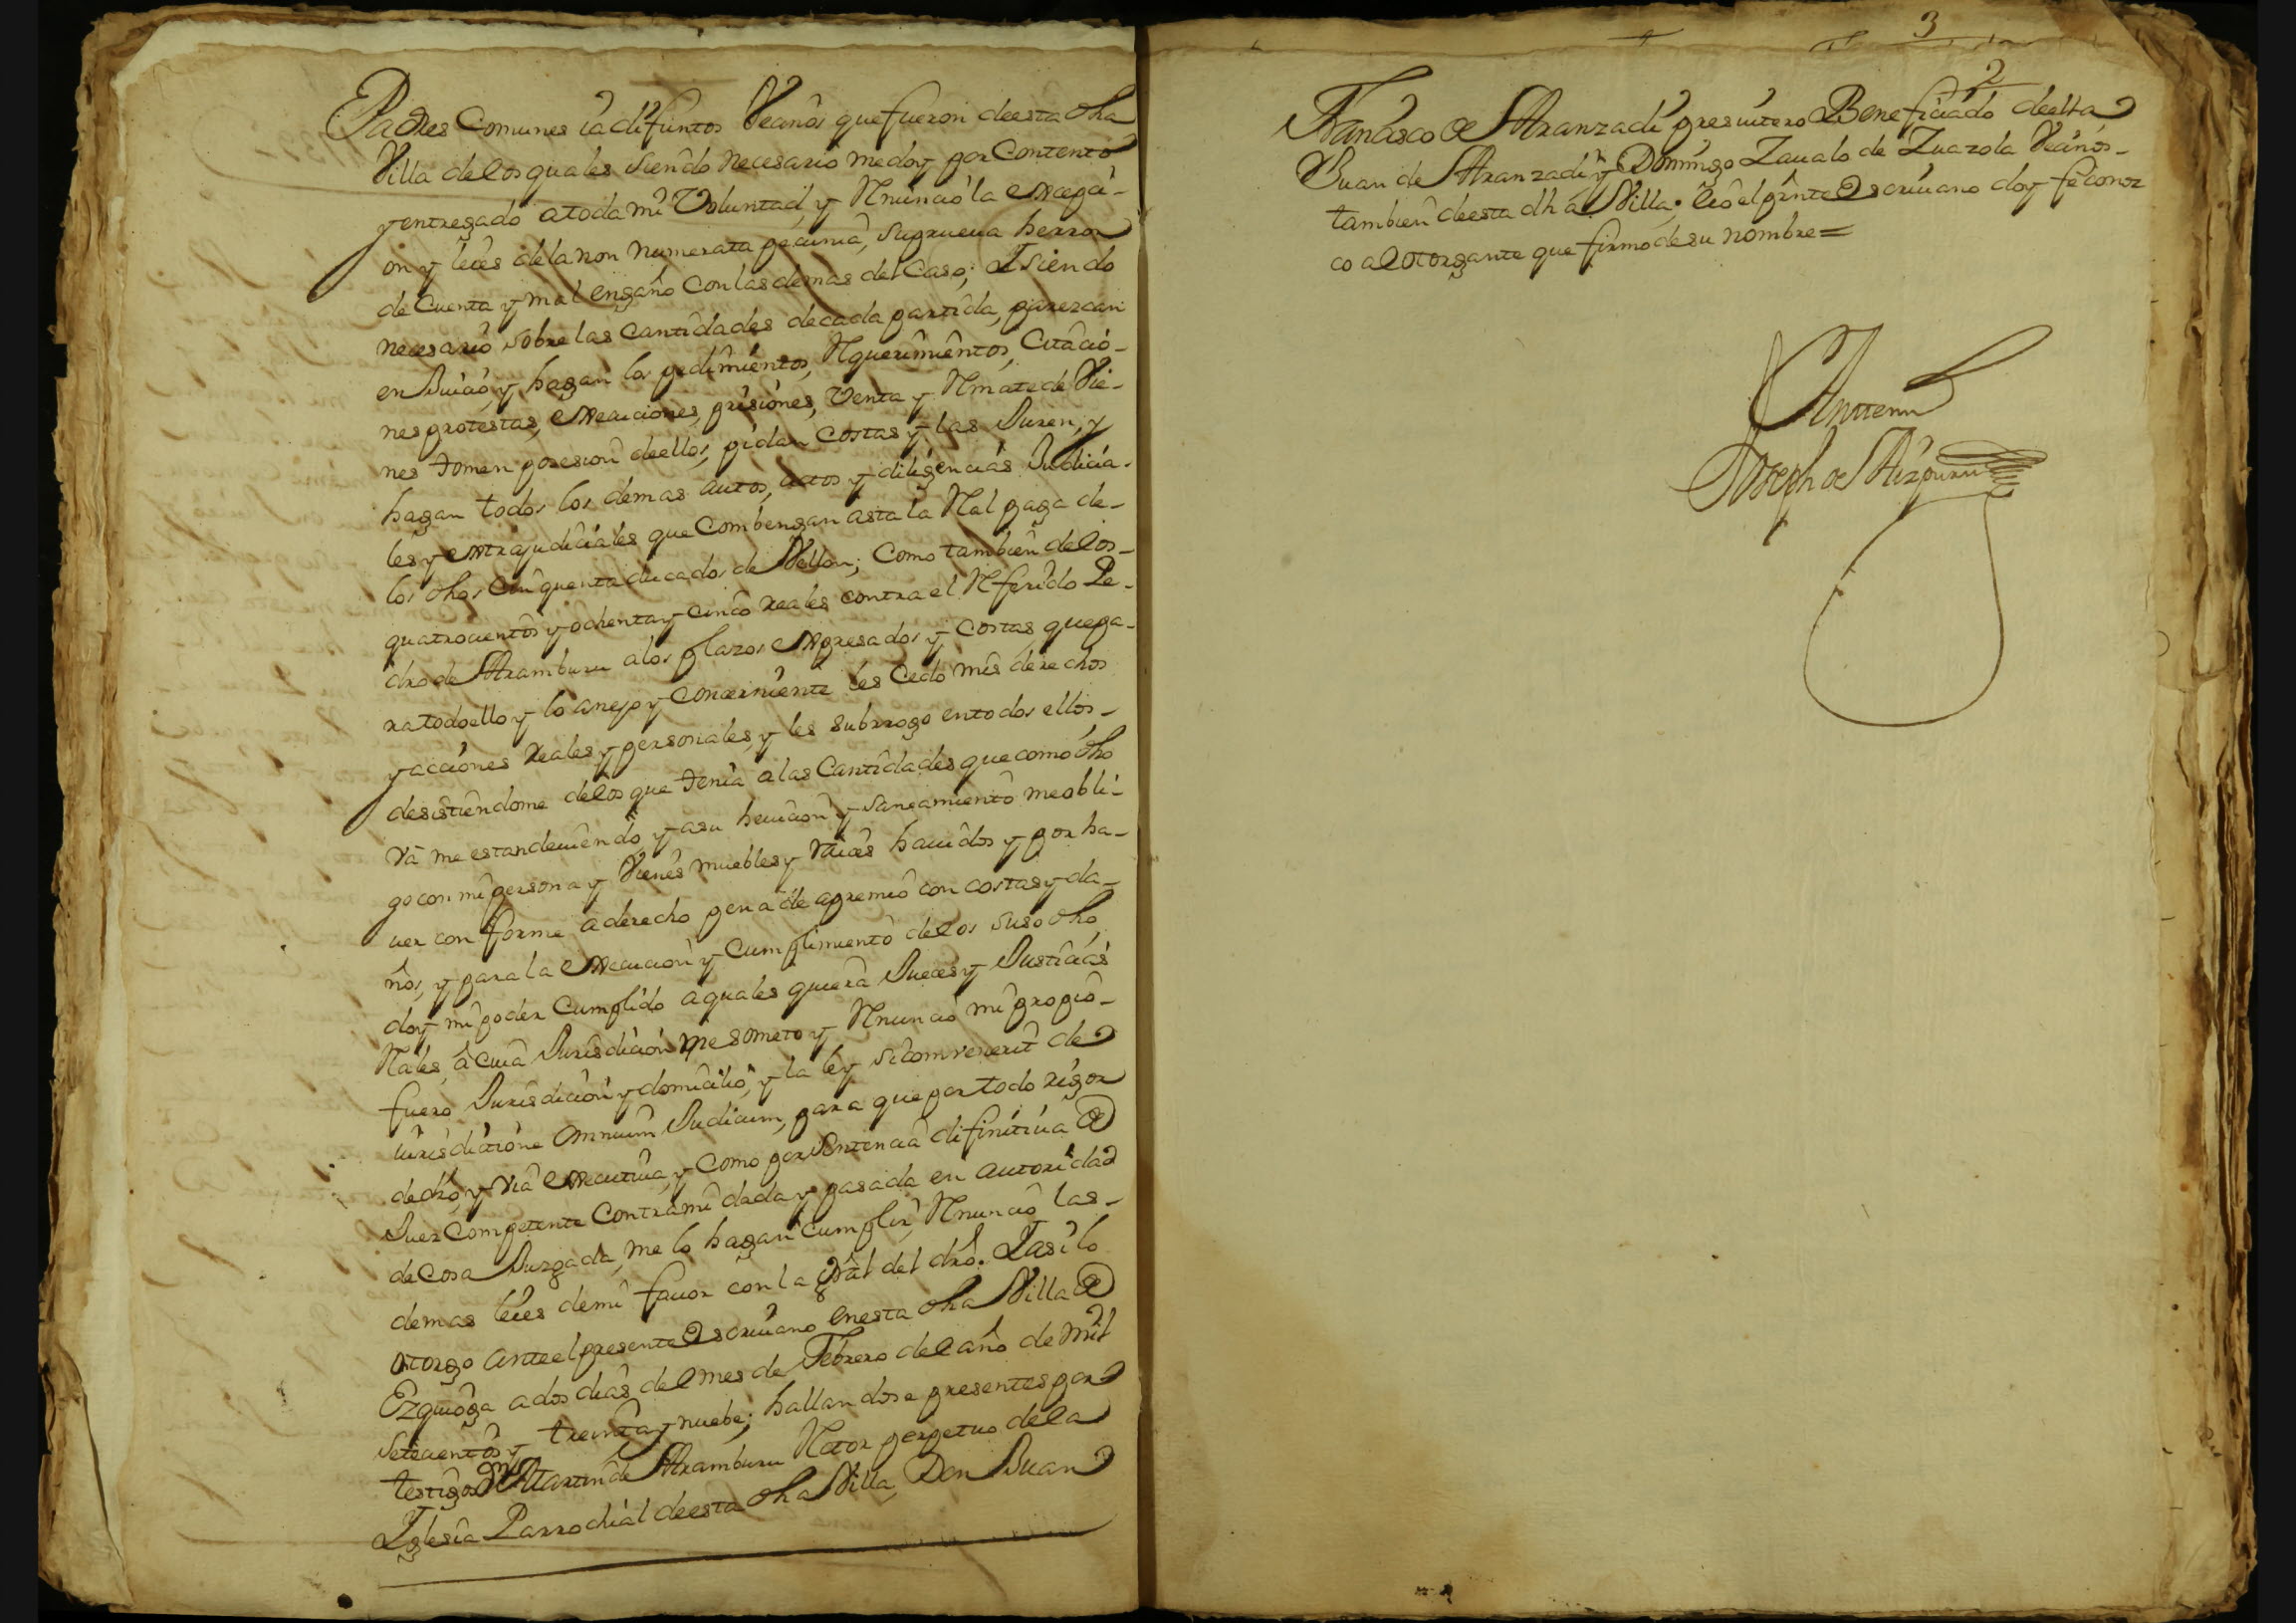 Padres Comunes ia difuntos Vecinos que fueron de esta dha
Villa de los quales siendo necesario me doy por Contento
y entregado a toda mi Voluntad, y Rnuncio la excepçi-
on y leies de la non numerata pecunia, su prueua herror
de Cuenta y mal engaño Con las demas del Caso; I siendo
necesario sobre las Cantidades de cada partida, parezcan
en Juicio, y hagan los pedimientos, Rquerimientos, Citacio-
nes protestas, execuciones, prisiones, Venta y Rmate de Vie-
nes tomen posesion de ellos, pidan Costas y las Juren, y
hagan todos los demas autos, actos y diligencias Judicia-
les y extrajudiciales que Combengan asta la Ral paga de-
los dhos Cinquenta ducados de Vellon; Como tambien de los-
quatrocientos y ochenta y cinco reales contra el Rferido Pe-
dro de Aramburu a los plazos expresados y costas que pa-
ra todo ello y lo anejo y Concerniente les Cedo mis derechos
y acciones Reales y personales, y les subrrogo en todos ellos-
desistiendome de los que tenia a las Cantidades que como dho
va me estan deuiendo, y a su heuicion y saneamiento me obli-
go con mi persona y Vienes muebles y raices hauidos y por ha-
uer con forme a derecho pena de apremio con costas y da-
ños, y para la execucion y Cumplimiento de los suso dho,
doy mi poder Cumplido a quales quiera Jueces y Justicias
Rales, a cuia Jurisdicion me someto y Rnuncio mi propio-
fuero Jurisdicion y domicilio, y la ley si comvenerit de
iurisdictione Omnium Judicum, para que por todo rigor
de dro, y via executiua, y Como por sentencia difinitiua de
Juez Competente Contra mi dada y pasada en autoridad
de Cosa Juzgada, me lo hagan Cumplir, Rnuncio las-
demas leies de mi fauor con la gral del dro. I asi lo
otorgo ante el presente Escriuano en esta dha Villa de
Ezquioga a dos dias del mes de Febrero del año de mil
setecientos y treinta y nuebe; hallandose presentes por
testigos Dn Martin de Aramburu Rctor perpetuo de la
Iglesia Parrochial de esta dha Villa, Don Juan
3
2
Francisco de Aranzadi presuitero Beneficiado de ella
Juan de Aranzadi y Domingo Zaualo de Zuazola Vecinos-
tambien de esta dha Villa; e io el prnte Escriuano doy fe conoz
co al otorgante que firmo de su nombre=
Antemi
Joseph de Aizpuru